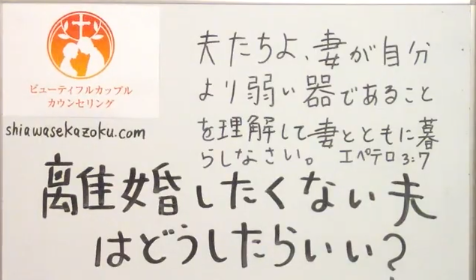 ビューティフルカップル
カウンセリング
shiawasekazoku.com
夫たちよ、妻が自分
より弱い器であること
を理解して妻とともに暮
らしなさい。 Iペテロ3:7
離婚したくない夫
はどうしたらいい？